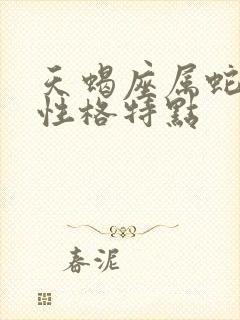 天蝎座属蛇
性格特點
春泥